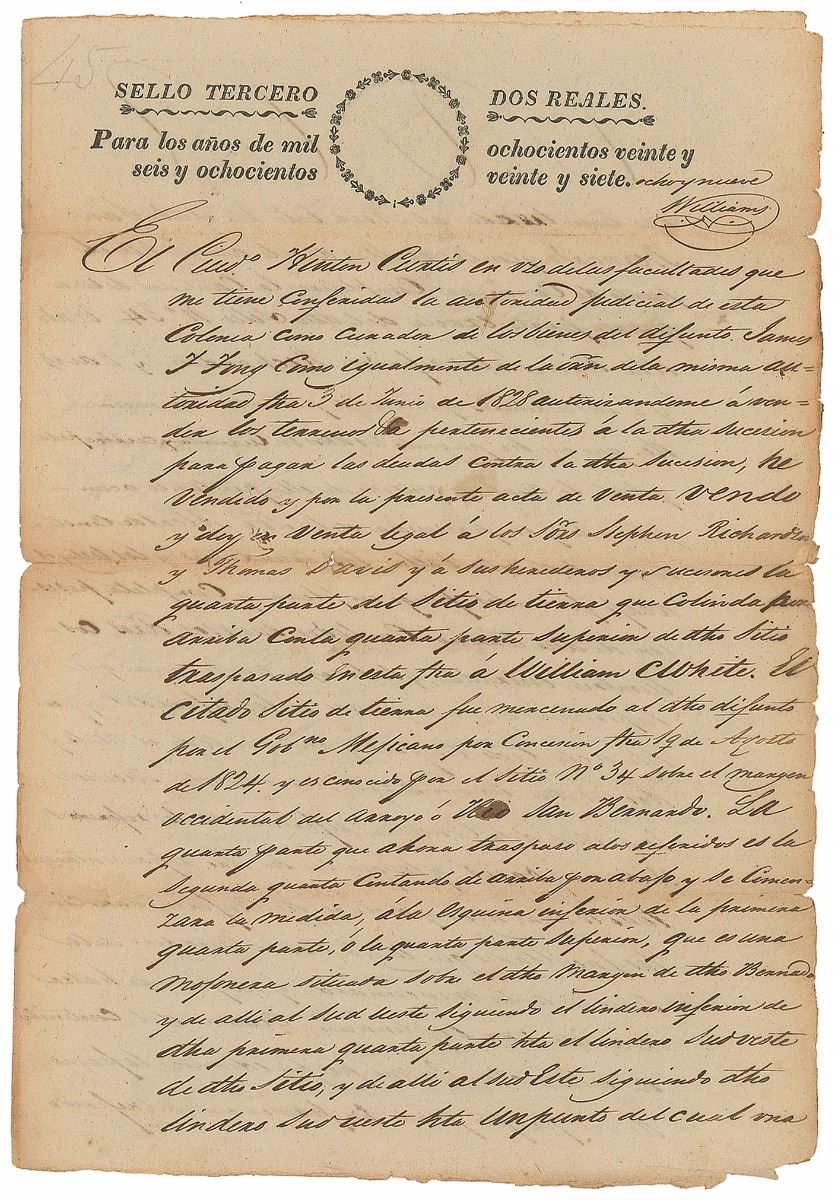 45
SELLO TERCERO DOS REALES.
Para los años de mil ochocientos veinte y
seis y ochocientos veinte y siete. ocho y nueve
Williams
El Ciud.º Hinton Curtis en vzo de las facultades que
me tiene Conferidas la autoridad judicial de esta
Colonia como Curador de los bienes del difunto James
Como igualmente de la de la misma au=
toridad fha 3 de Junio de 1828 autorizandome á ven=
der los terrenos pertenecientes á la dha sucesion
para pagar las deudas contra la dha sucesion, he
vendido y por la presente acta de venta vendo
y doy en venta legal á los Sõrs Stephen Richardson
y Thomas Davis y á sus herederos y sucesores la
quarta parte del Sitio de tierra que Colinda por
arriba Con la quarta parte Superior de dho Sitio
traspasado en esta fha á William C White. El
Citado Sitio de tierra fue mercenado al dho difunto
por el Gob.no Mejicano por Concesion fha 19 de Agosto
de 1824. y es conocido por el Sitio Nº 34 sobre el margen
occidental del arroyo ó Rio San Bernardo. La
quarta parte que ahora traspaso a los referidos es la
Segunda quarta Contando de arriba por abajo y se Comen=
zara la medida, á la esquina inferior de la primera
quarta parte, ó la quarta parte Superior, que es una
Mojonera situada sobre el dho Margen de dho Bernardo
y de alli al sud ueste siguiendo el lindero inferior de
dha primera quarta parte hta el lindero Sud veste
de dho Sitio, y de alli al sud Este siguiendo dho
lindero Sud ueste hta un punto del cual vna